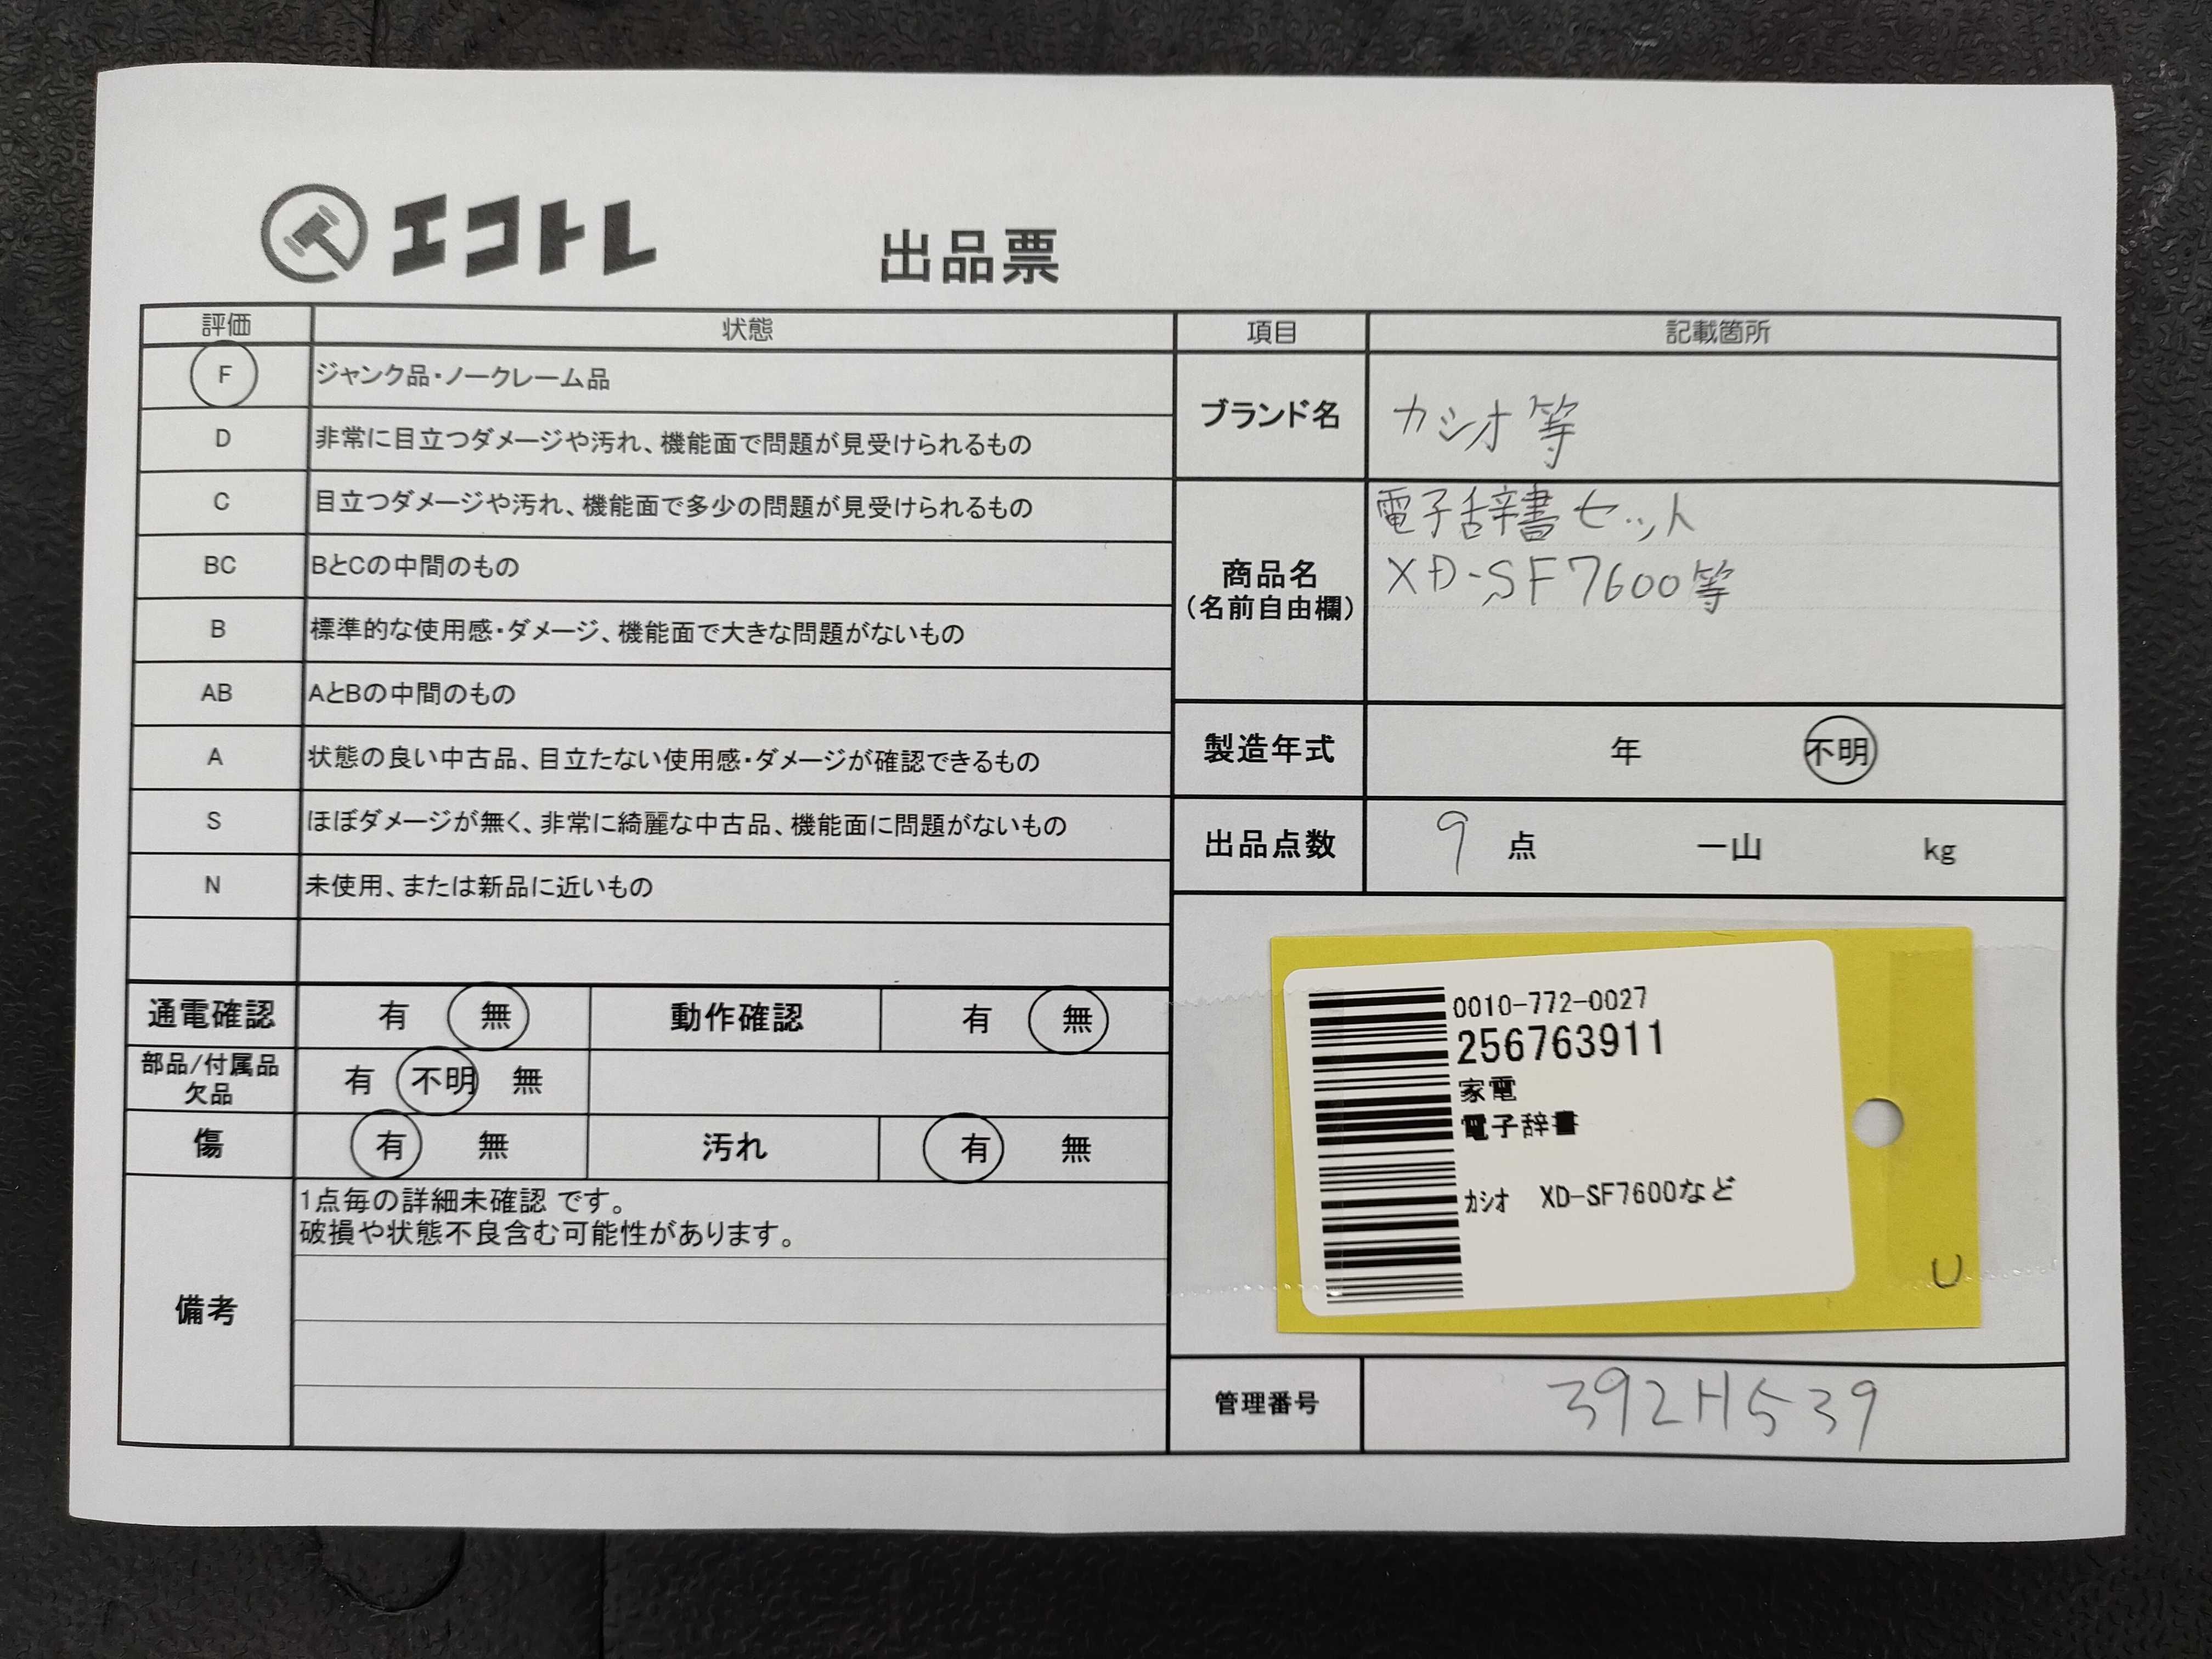 エコトレ
出品票
評価 状態
F ジャンク品・ノークレーム品
D 非常に目立つダメージや汚れ、機能面で問題が見受けられるもの
C 目立つダメージや汚れ、機能面で多少の問題が見受けられるもの
BC BとCの中間のもの
B 標準的な使用感・ダメージ、機能面で大きな問題がないもの
AB AとBの中間のもの
A 状態の良い中古品、目立たない使用感・ダメージが確認できるもの
S ほぼダメージが無く、非常に綺麗な中古品、機能面に問題がないもの
N 未使用、または新品に近いもの
通電確認 有 無 動作確認 有 無
部品/付属品
欠品 有 不明 無
傷 有 無 汚れ 有 無
備考
1点毎の詳細未確認 です。
破損や状態不良含む可能性があります。
項目 記載箇所
ブランド名 カシオ等
商品名
(名前自由欄)
電子辞書セット
XD-SF7600等
製造年式 年 不明
出品点数 9 点 一山 kg
0010-772-0027
256763911
家電
電子辞書
ｶｼｵ XD-SF7600など
U
管理番号 392H539